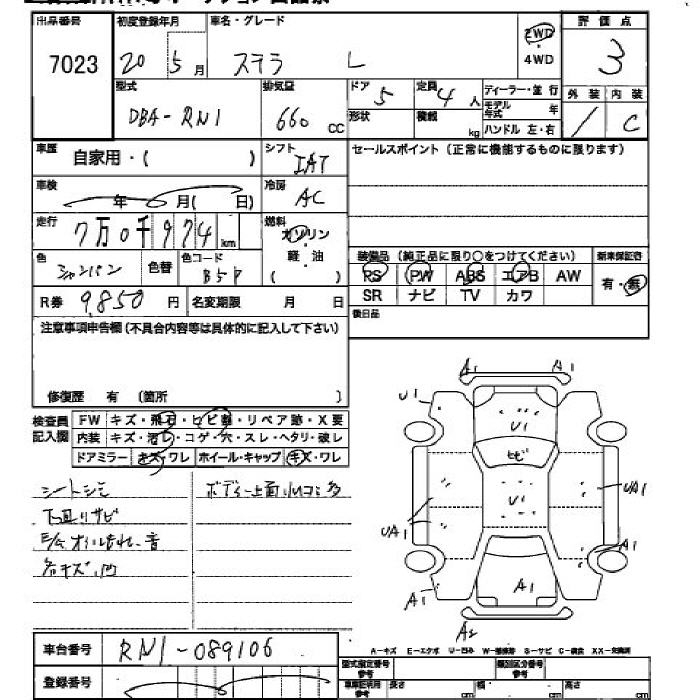 出品番号 初度登録年月 車名・グレード 評価点
7023 20 5月 ステラ L 2WD・4WD 3
型式 排気量 ドア 定員 ディーラー・並行 外装 内装
DBA-RN1 660 CC 5 4人 モデル年式 年 / C
形状 積載 kg ハンドル 左・右
車歴 自家用・( ) シフト IAT セールスポイント(正常に機能するものに限ります)
車検 年 月( 日) 冷房 AC
走行 7万0千974km 燃料 ガソリン・軽・油 ( )
装備品(純正品に限り○をつけてください) 新車保証書
色 シャンパン 色替 色コード B5P
PS PW ABS エアB AW 有・無
SR ナビ TV カワ
R券 9,850円 名変期限 月 日 後日品
注意事項申告欄(不具合内容等は具体的に記入して下さい)
修復歴 有 (箇所 )
検査員記入欄 FW キズ・飛石・ヒビ割・リペア跡・X要
内装 キズ・汚レ・コゲ・穴・スレ・ヘタリ・破レ
ドアミラー キズ・ワレ ホイール・キャップ キズ・ワレ
シートシミ ボデー上面小凹コミ多
下回りサビ
各キズ、凹
A1 A1
U1 U1
ヒビ
U1 UA1
UA1
A1
A1 A1
A2
車台番号 RN1-089106
A-キズ E-エクボ U-凹み W-補修跡 S-サビ C-腐食 XX-交換済
登録番号 型式指定番号参考 類別区分番号参考
車庫証明用参考 長さ cm 幅 cm 高さ cm